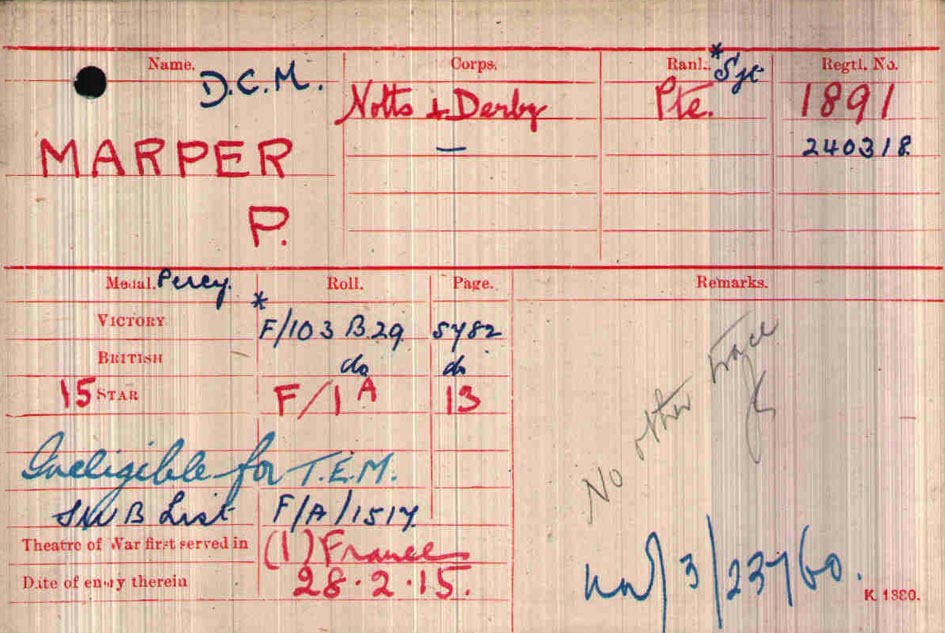 Name. Corps. Rank. *Sjt Regtl. No.
D.C.M. Notts & Derby Pte. 1891
MARPER — 240318
P.
Medal. Percy. Roll. Page. Remarks.
VICTORY * F/103 B.29 5782
BRITISH do do
15 STAR F/1A 13
No other trace
Ineligible for T.E.M.
SWB List F/A/1517
Theatre of War first served in (1) France
Date of entry therein 28.2.15.
/3/23760.
K. 1380.